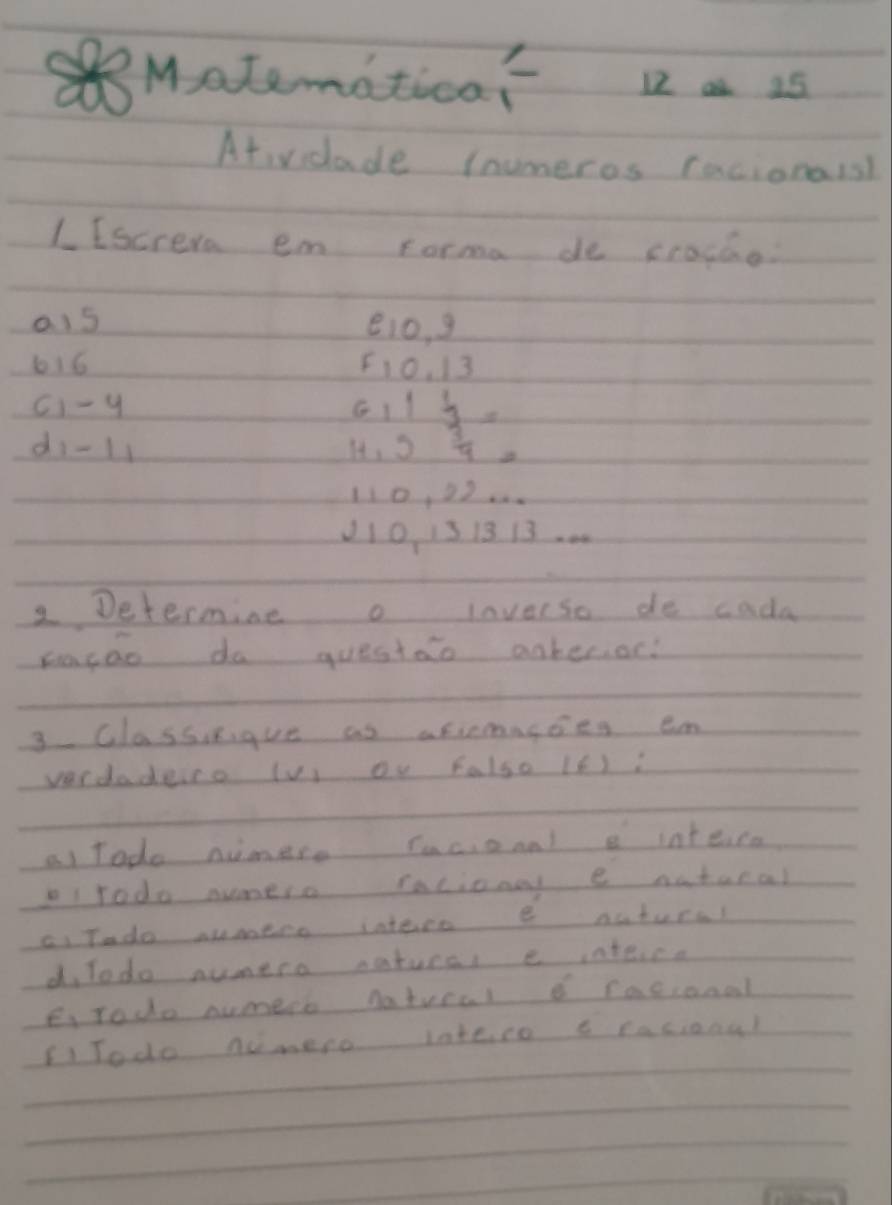 Matemática: 12 25
Atividade (numeros racionais)
1. Escreva em forma de fração:
a) 5 e) 0,9
b) 6 f) 0,13
c) -4 G) 1
d) -11 H)
I) 0,22...
J) 0,131313...
2. Determine o inverso de cada
fração da questão anterior:
3- Classifique as afirmações em
verdadeiro (v) ou falso (f):
a) Todo número racional e inteiro
b) todo numero racional e natural
c) Todo numero inteiro é natural
d) Todo numero natural e inteiro
E) Todo numero natural é racional
f) Todo número inteiro é racional